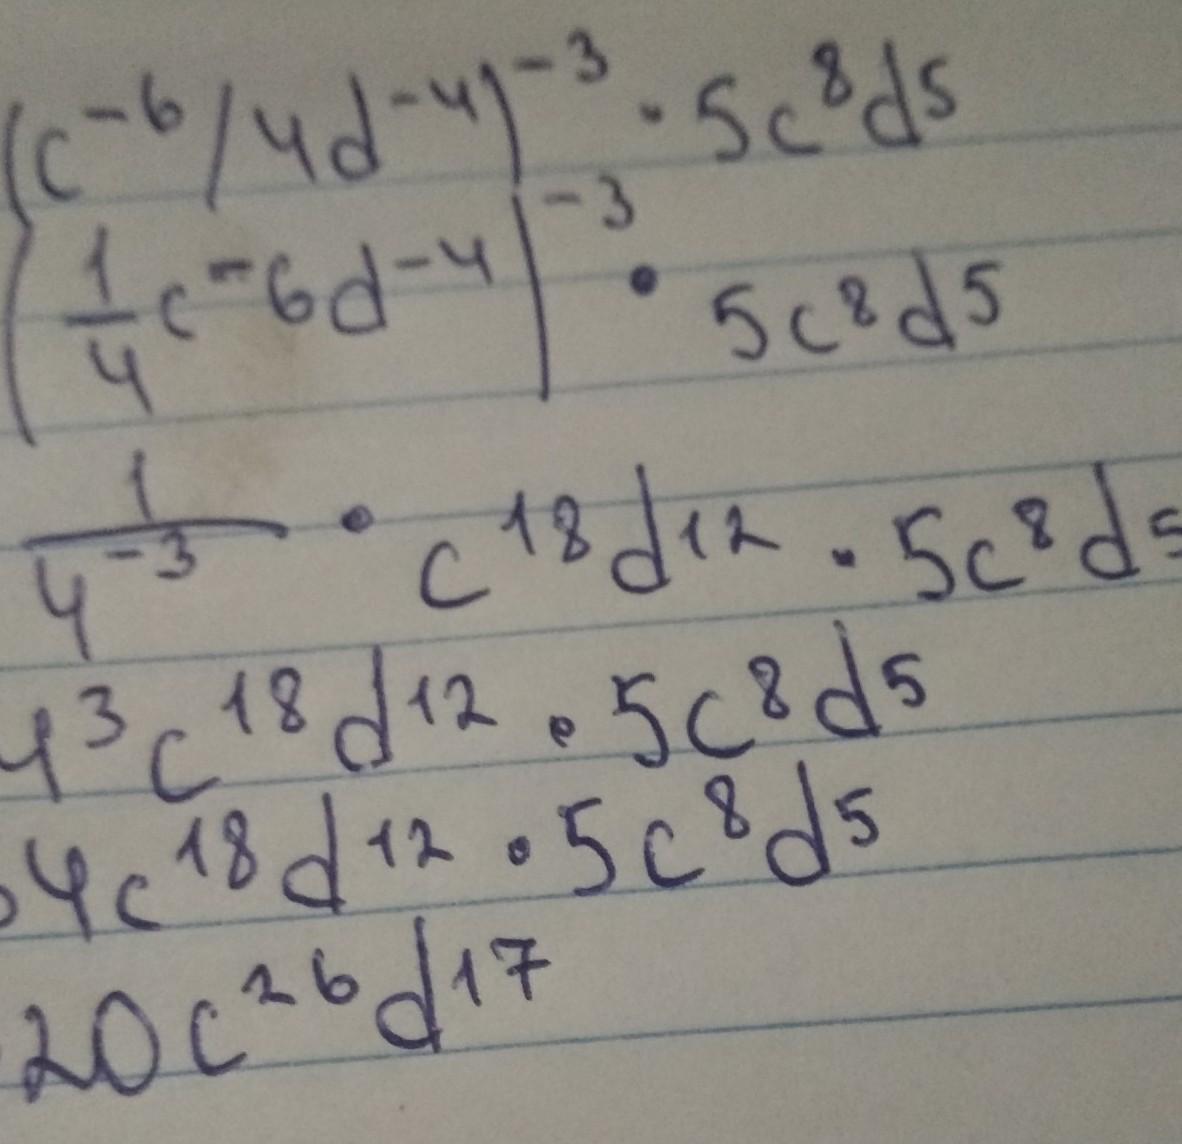 (c⁻⁶/4d⁻⁴)⁻³ · 5c⁸d⁵
(1/4 c⁻⁶d⁻⁴)⁻³ · 5c⁸d⁵
1/4⁻³ · c¹⁸d¹² · 5c⁸d⁵
4³c¹⁸d¹² · 5c⁸d⁵
4c¹⁸d¹² · 5c⁸d⁵
20c²⁶d¹⁷